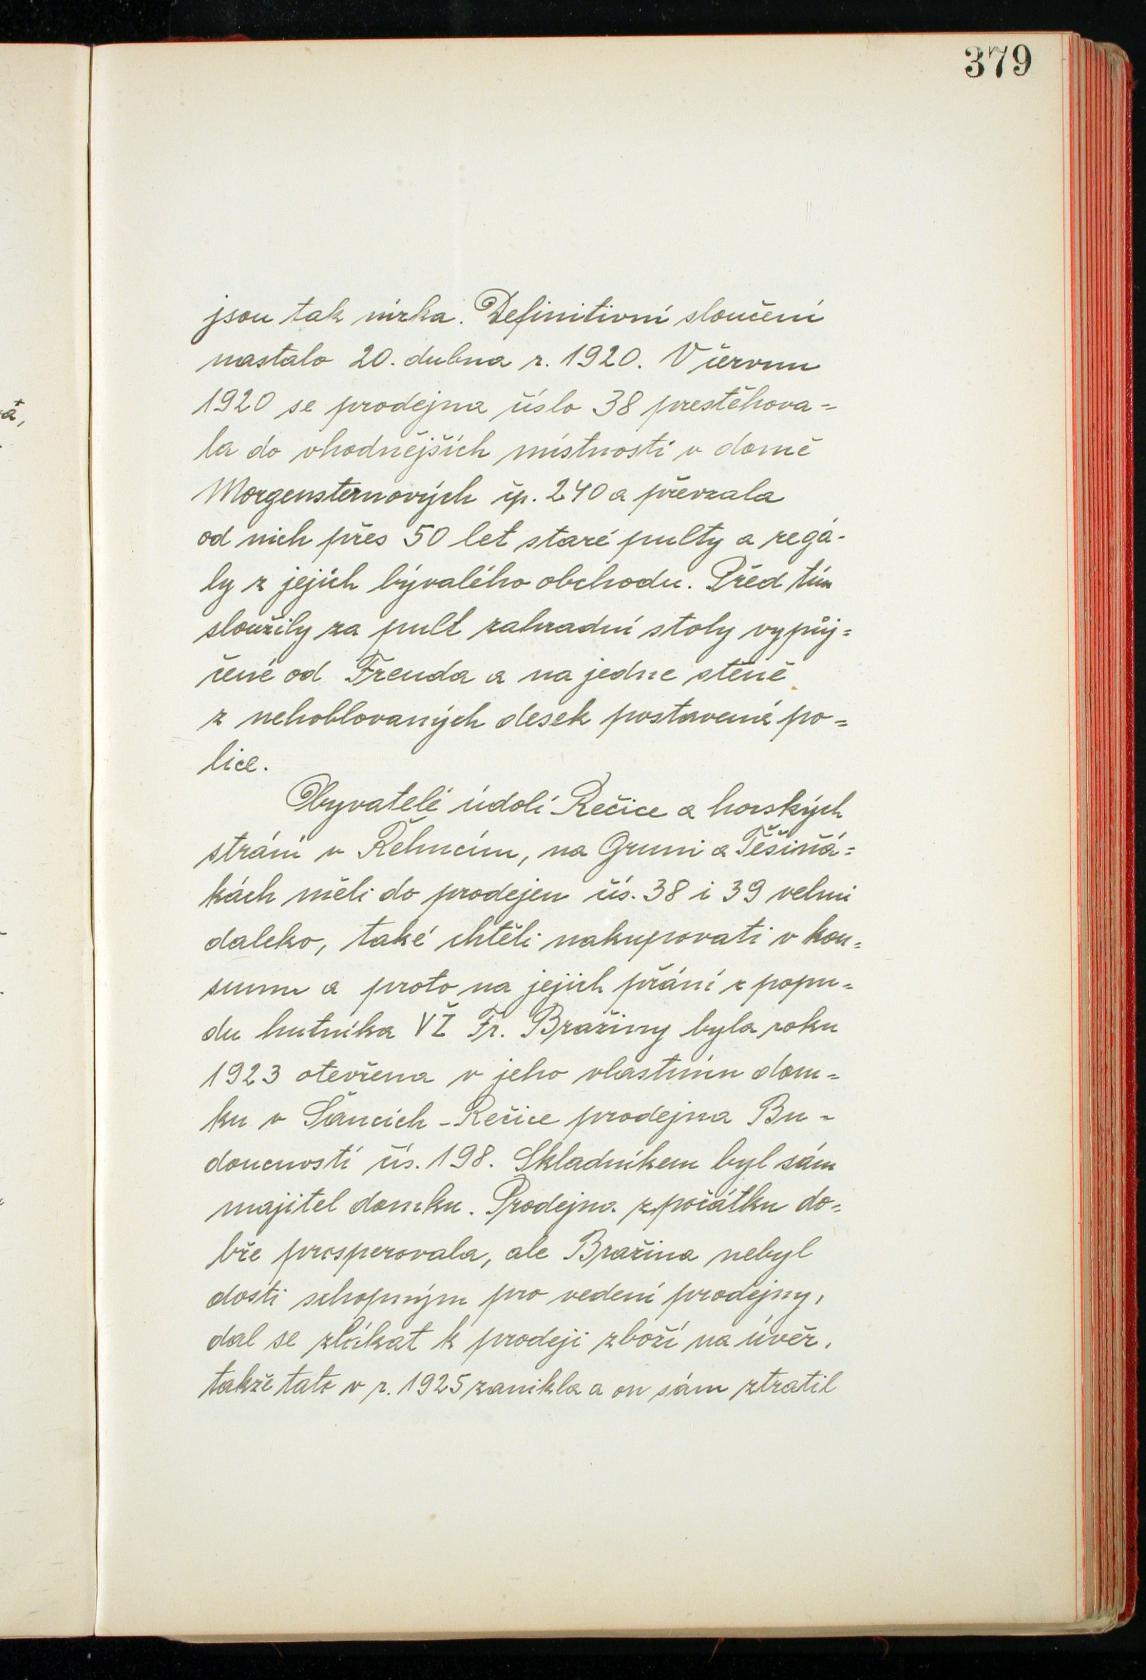 379
jsou tak nízka. Definitivní sloučení
nastalo 20. dubna r. 1920. V červnu
1920 se prodejna číslo 38 prestěhova=
la do vhodnějších místností v domě
Morgensternových čp. 240 a převzala
od nich přes 50 let staré pulty a regá-
ly z jejich bývalého obchodu. Před tím
sloužily za pult zahradní stoly vypůj=
čené od Frenda a na jedne stěně
z nehoblovaných desek postavené po=
lice.
Obyvatelé údolí Rečice a horských
strání v Řehucím, na Gruni a Těšiňá=
kách měli do prodejen čís. 38 i 39 velmi
daleko, také chtěli nakupovati v kon=
sumu a proto na jejich přání z popu=
du hutníka VŽ Fr. Bražiny byla roku
1923 otevřena v jeho vlastním dom=
ku v Šancích-Rečice prodejna Bu=
doucnosti čís. 198. Skladníkem byl sám
majitel domku. Prodejna zpočátku do=
bře prosperovala, ale Bražina nebyl
dosti schopným pro vedení prodejny,
dal se zlákat k prodeji zboží na úvěr,
takže tato v r. 1925 zanikla a on sám ztratil